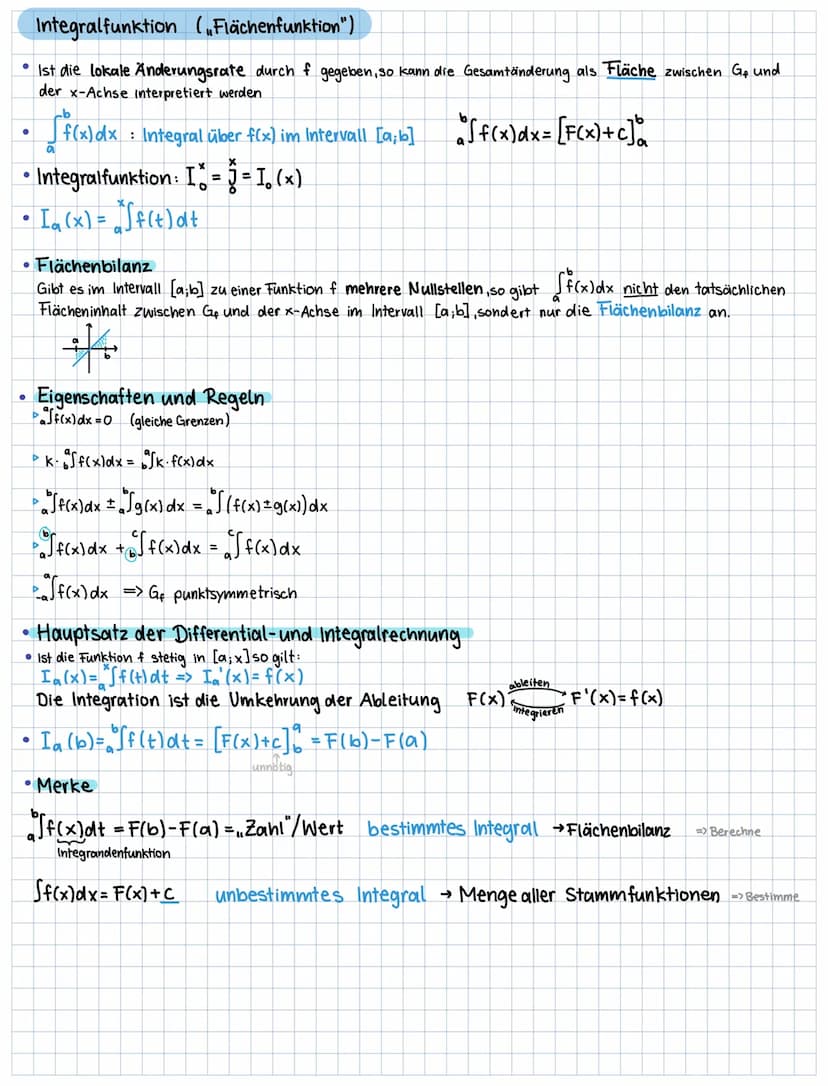 Integralfunktion („Flächenfunktion")
• Ist die lokale Änderungsrate durch f gegeben, so kann die Gesamtänderung als Fläche zwischen G_f und
der x-Achse interpretiert werden
• ₐ∫ᵇ f(x)dx : Integral über f(x) im Intervall [a;b]    ᵇₐ∫f(x)dx = [F(x)+c]ᵇₐ
• Integralfunktion: I₀ˣ = ₀∫ˣ = I₀(x)
• Iₐ(x) = ˣₐ∫f(t)dt
• Flächenbilanz
Gibt es im Intervall [a;b] zu einer Funktion f mehrere Nullstellen, so gibt ₐ∫ᵇf(x)dx nicht den tatsächlichen
Flächeninhalt zwischen G_f und der x-Achse im Intervall [a;b], sondert nur die Flächenbilanz an.
a
b
• Eigenschaften und Regeln
▹ ᵃₐ∫f(x)dx = 0 (gleiche Grenzen)
▹ k · ᵃ_b∫f(x)dx = ᵃ_b∫k·f(x)dx
▹ ᵇₐ∫f(x)dx ± ᵇₐ∫g(x)dx = ᵇₐ∫(f(x)±g(x))dx
▹ ᵇₐ∫f(x)dx + ᶜ_b∫f(x)dx = ᶜₐ∫f(x)dx
▹ ᵃ₋ₐ∫f(x)dx => G_f punktsymmetrisch
• Hauptsatz der Differential- und Integralrechnung
• Ist die Funktion f stetig in [a;x] so gilt:
Iₐ(x) = ˣₐ∫f(t)dt => Iₐ'(x) = f(x)
Die Integration ist die Umkehrung der Ableitung    F(x) ableiten integrieren F'(x) = f(x)
• Iₐ(b) = ᵇₐ∫f(t)dt = [F(x)+c]ᵃ_b = F(b)-F(a)
unnötig
• Merke
ᵇₐ∫f(x)dt = F(b)-F(a) = „Zahl"/Wert    bestimmtes Integral → Flächenbilanz => Berechne
Integrandenfunktion
∫f(x)dx = F(x)+c    unbestimmtes Integral → Menge aller Stammfunktionen => Bestimme